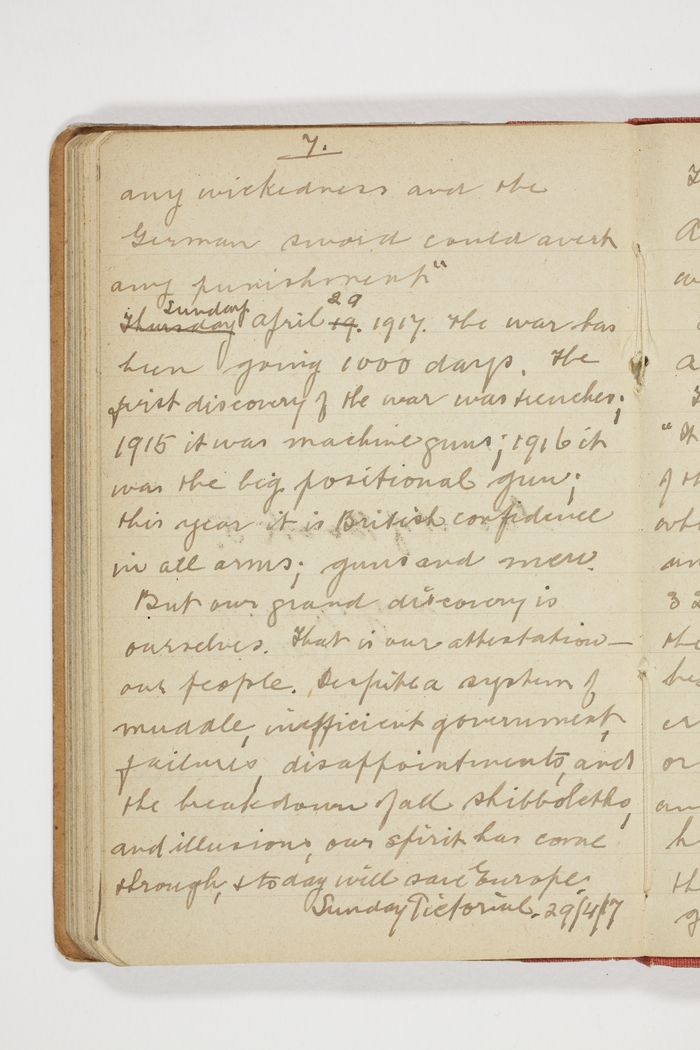 7.
any wickedness and the
German sword could avert
any punishment"
Thursday Sunday April 19. 29 1917. The war has
been going 1000 days. The
first discovery of the war was trenches;
1915 it was machine guns; 1916 it
was the big positional gun;
this year it is British confidence
in all arms; guns and men.
But our grand discovery is
ourselves. That is our attestation—
our people. Despite a system of
muddle, inefficient government,
failures, disappointments, and
the breakdown of all shibboleths,
and illusions, our spirit has come
through, & today will save Europe.
Sunday Pictorial. 29/4/17